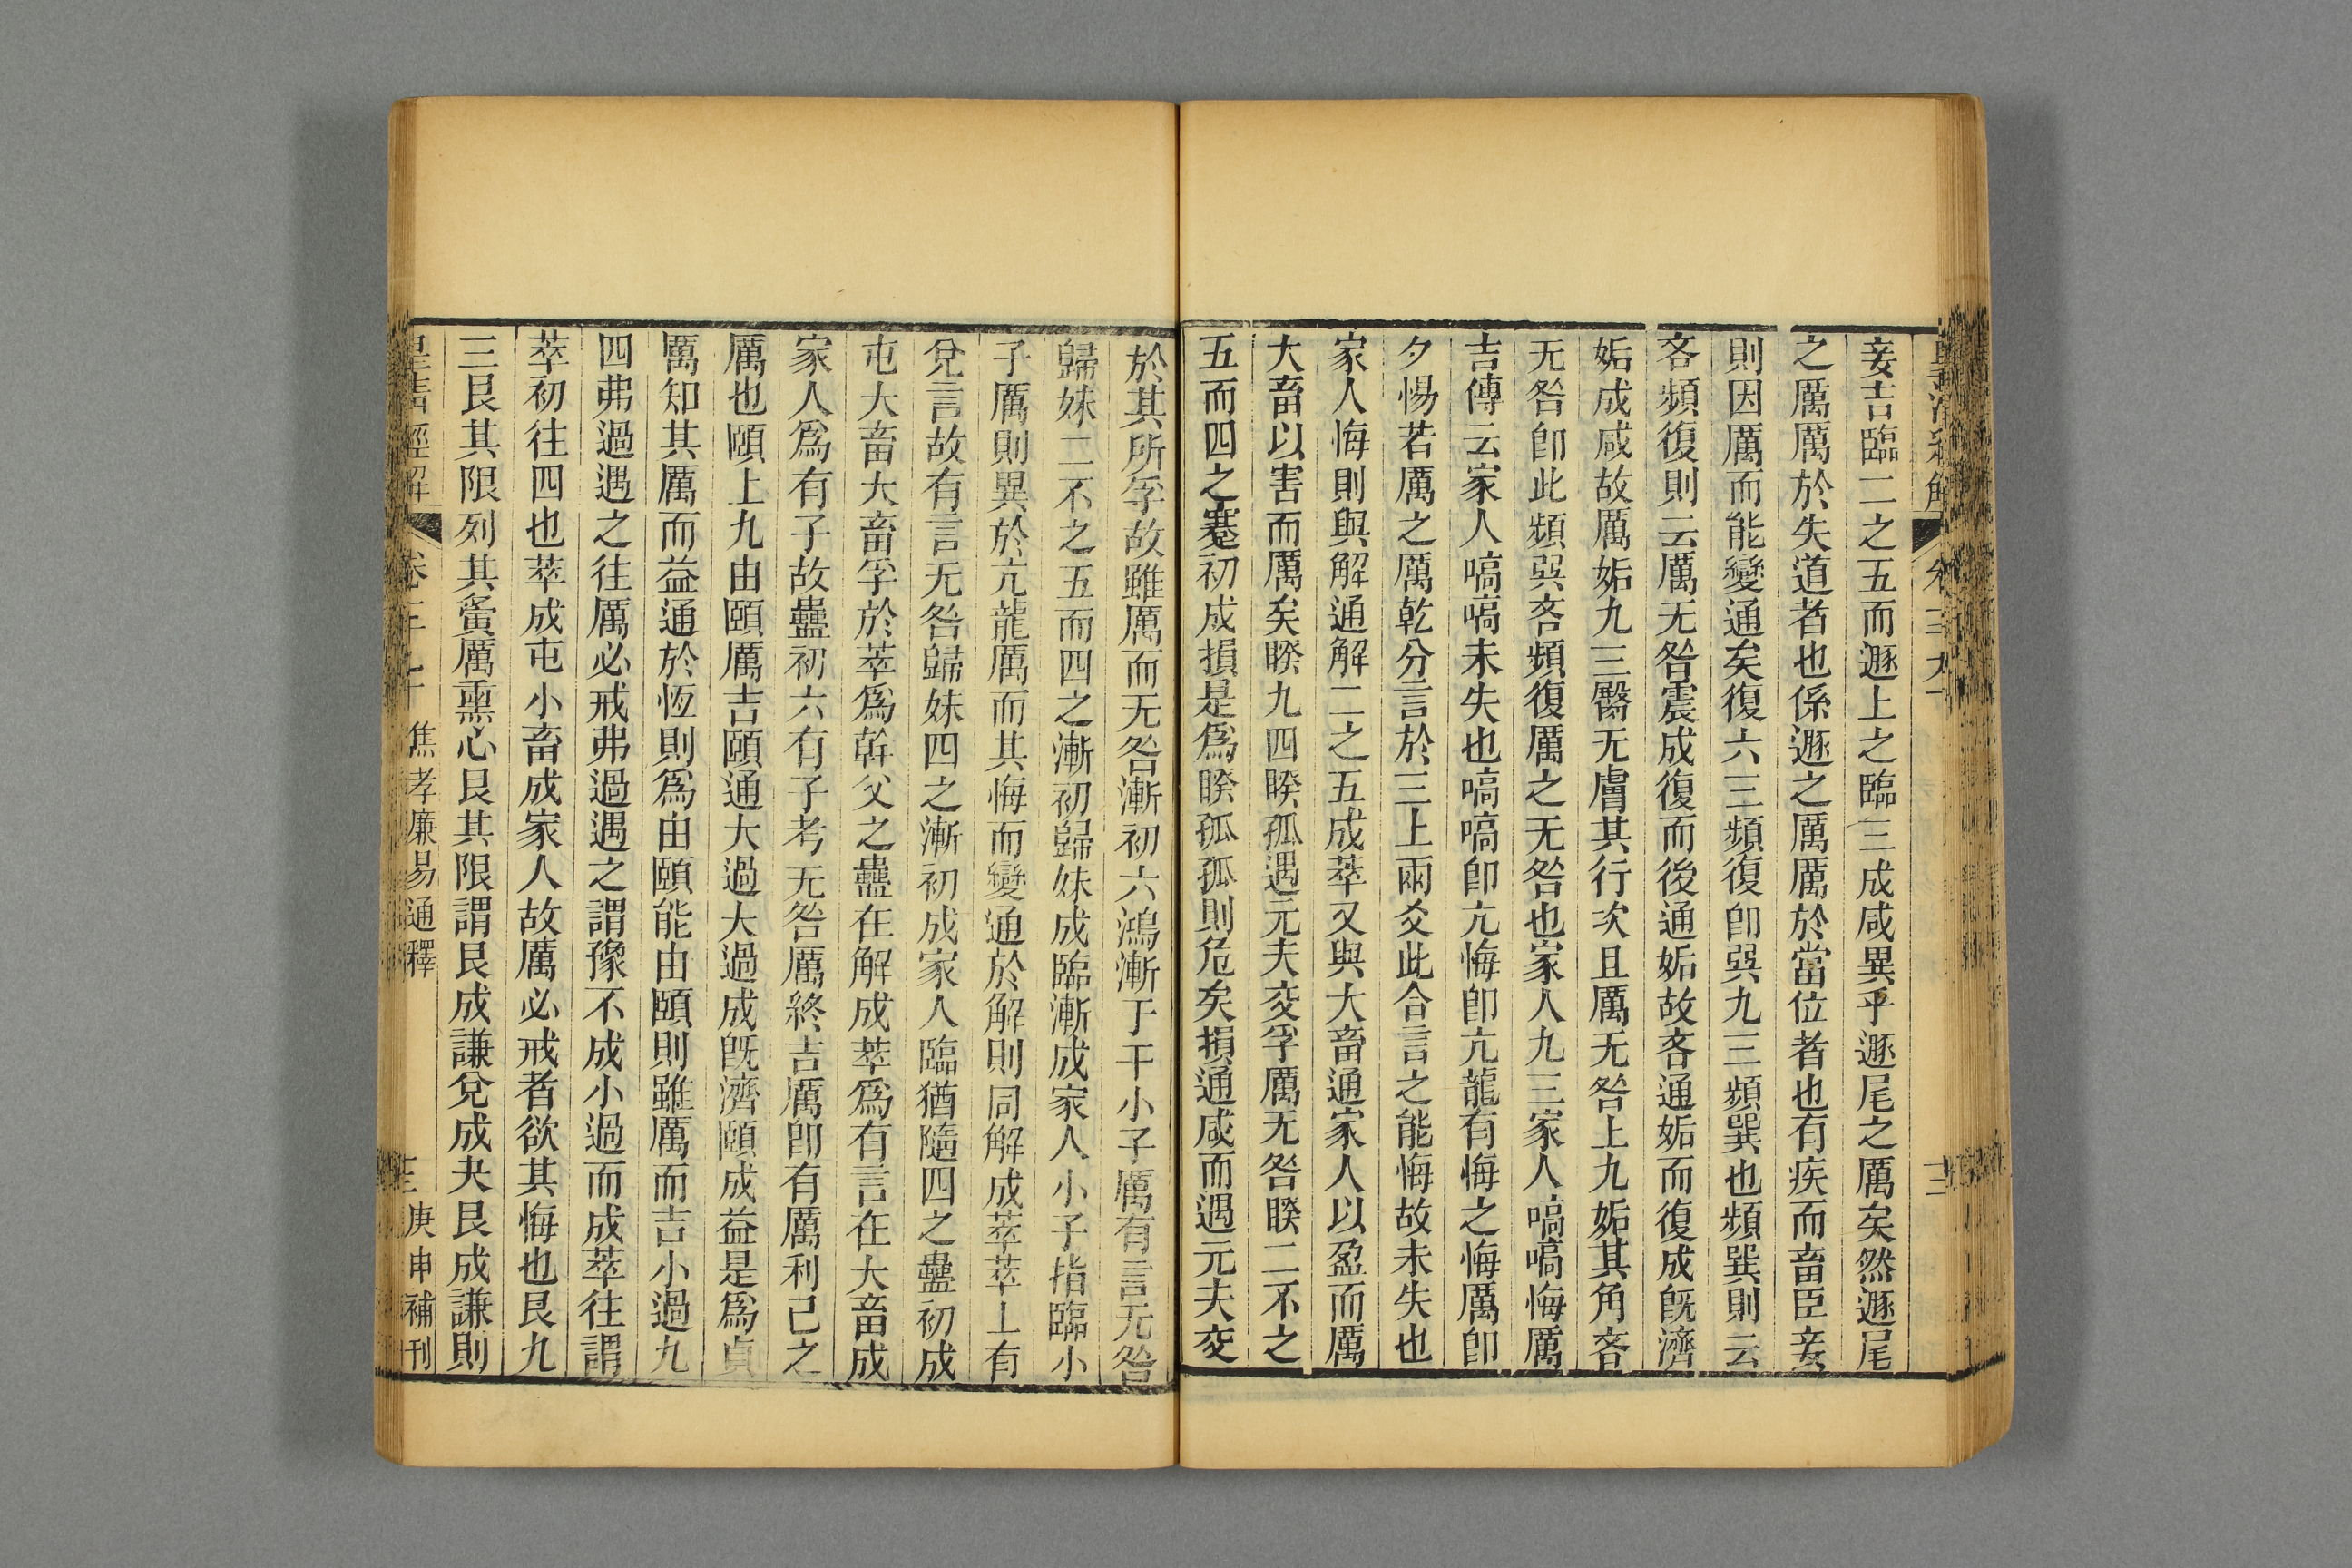 妾吉臨二之五而遯上之臨三成咸異乎遯尾之厲矣然遯尾
之厲厲於失道者也係遯之厲厲於當位者也有疾而畜臣妾
則因厲而能變通矣復六三頻復卽巽九三頻巽也頻巽則云
吝頻復則云厲无咎震成復而後通姤故吝通姤而復成旣濟
姤成咸故厲姤九三臀无膚其行次且厲无咎上九姤其角吝
无咎卽此頻巽吝頻復厲之无咎也家人九三家人嗃嗃悔厲
吉傳云家人嗃嗃未失也嗃嗃卽亢悔卽亢龍有悔之悔厲卽
夕惕若厲之厲乾分言於三上兩爻此合言之能悔故未失也
家人悔則與解通解二之五成萃又與大畜通家人以盈而厲
大畜以害而厲矣睽九四睽孤遇元夫交孚厲无咎睽二不之
五而四之蹇初成損是爲睽孤孤則危矣損通咸而遇元夫交
於其所孚故雖厲而无咎漸初六鴻漸于干小子厲有言无咎
歸妹二不之五而四之漸初歸妹成臨漸成家人小子指臨小
子厲則異於亢龍厲而其悔而變通於解則同解成萃萃上有
兌言故有言无咎歸妹四之漸初成家人臨猶隨四之蠱初成
屯大畜大畜孚於萃爲幹父之蠱在解成萃爲有言在大畜成
家人爲有子故蠱初六有子考无咎厲終吉厲卽有厲利已之
厲也頤上九由頤厲吉頤通大過大過成旣濟頤成益是爲貞
厲知其厲而益通於恆則爲由頤能由頤則雖厲而吉小過九
四弗過遇之往厲必戒弗過遇之謂豫不成小過而成萃往謂
萃初往四也萃成屯小畜成家人故厲必戒者欲其悔也艮九
三艮其限列其夤厲熏心艮其限謂艮成謙兌成夬艮成謙則
皇清經解
焦孝廉易通釋
庚申補刊